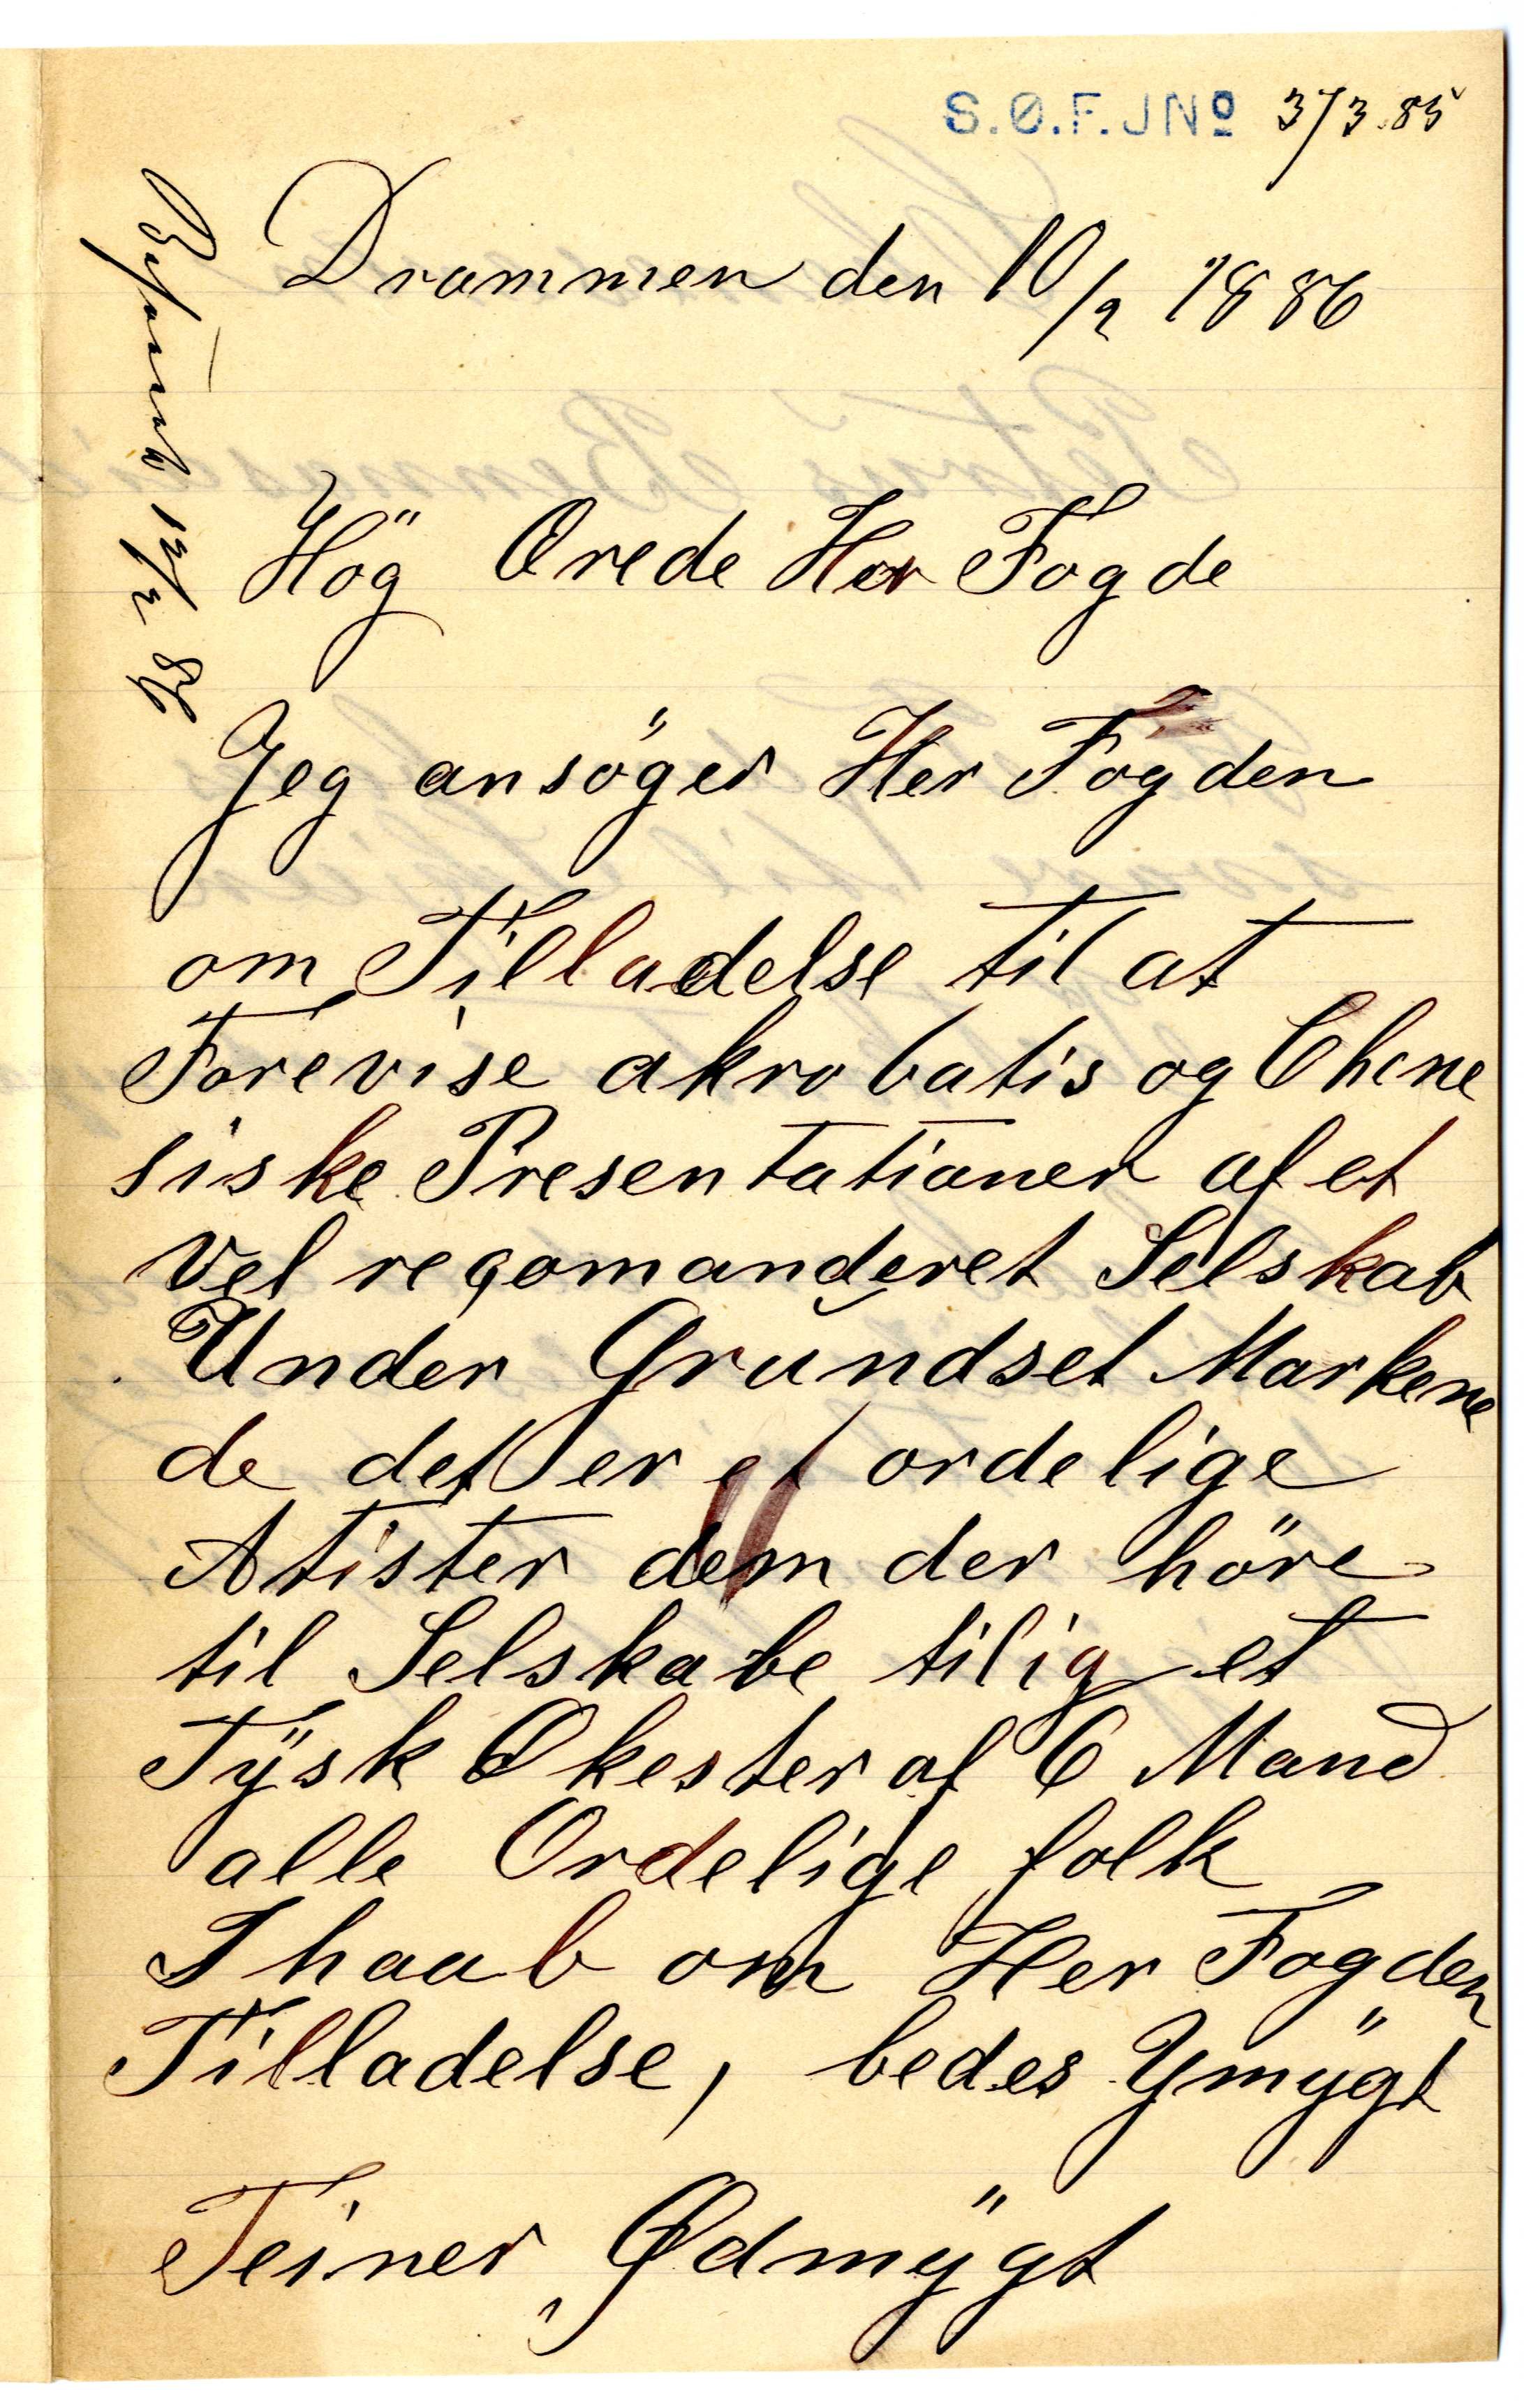 S.Ø.F. J Nº 373.85
Drammen den 10/2 1886
Hög Ærede Her Fogde
Jeg ansöger Her Fogden
om Tilladelse til at
Forevise akrobatis og Chene
siske Presentationer af et
Vel reqomanderet Selskab
Under Grundset Markene
de det er et ordelige
Atister dem der höre
til Selskabe tilig et
Tÿsk Okester af 6 Mand
alle Ordelige folk
I haab om Her Fogden
Tilladelse, bedes Ymÿgt
Teiner Ødmÿgt
12/2 86